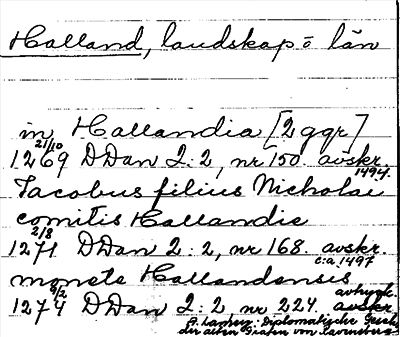 Halland, landskap o län
in Hallandia [2 ggr]
21/10
1269 DDan 2:2, nr 150. avskr. 1494.
Iacobus filius Nicholai
comitis Hallandie
2/8
1271 DDan 2:2, nr 168. avskr. c:a 1497
monete Hallandensis
9/2
1274 DDan 2:2 nr 224. avskr.
Diplomatische
der alten Grafen von